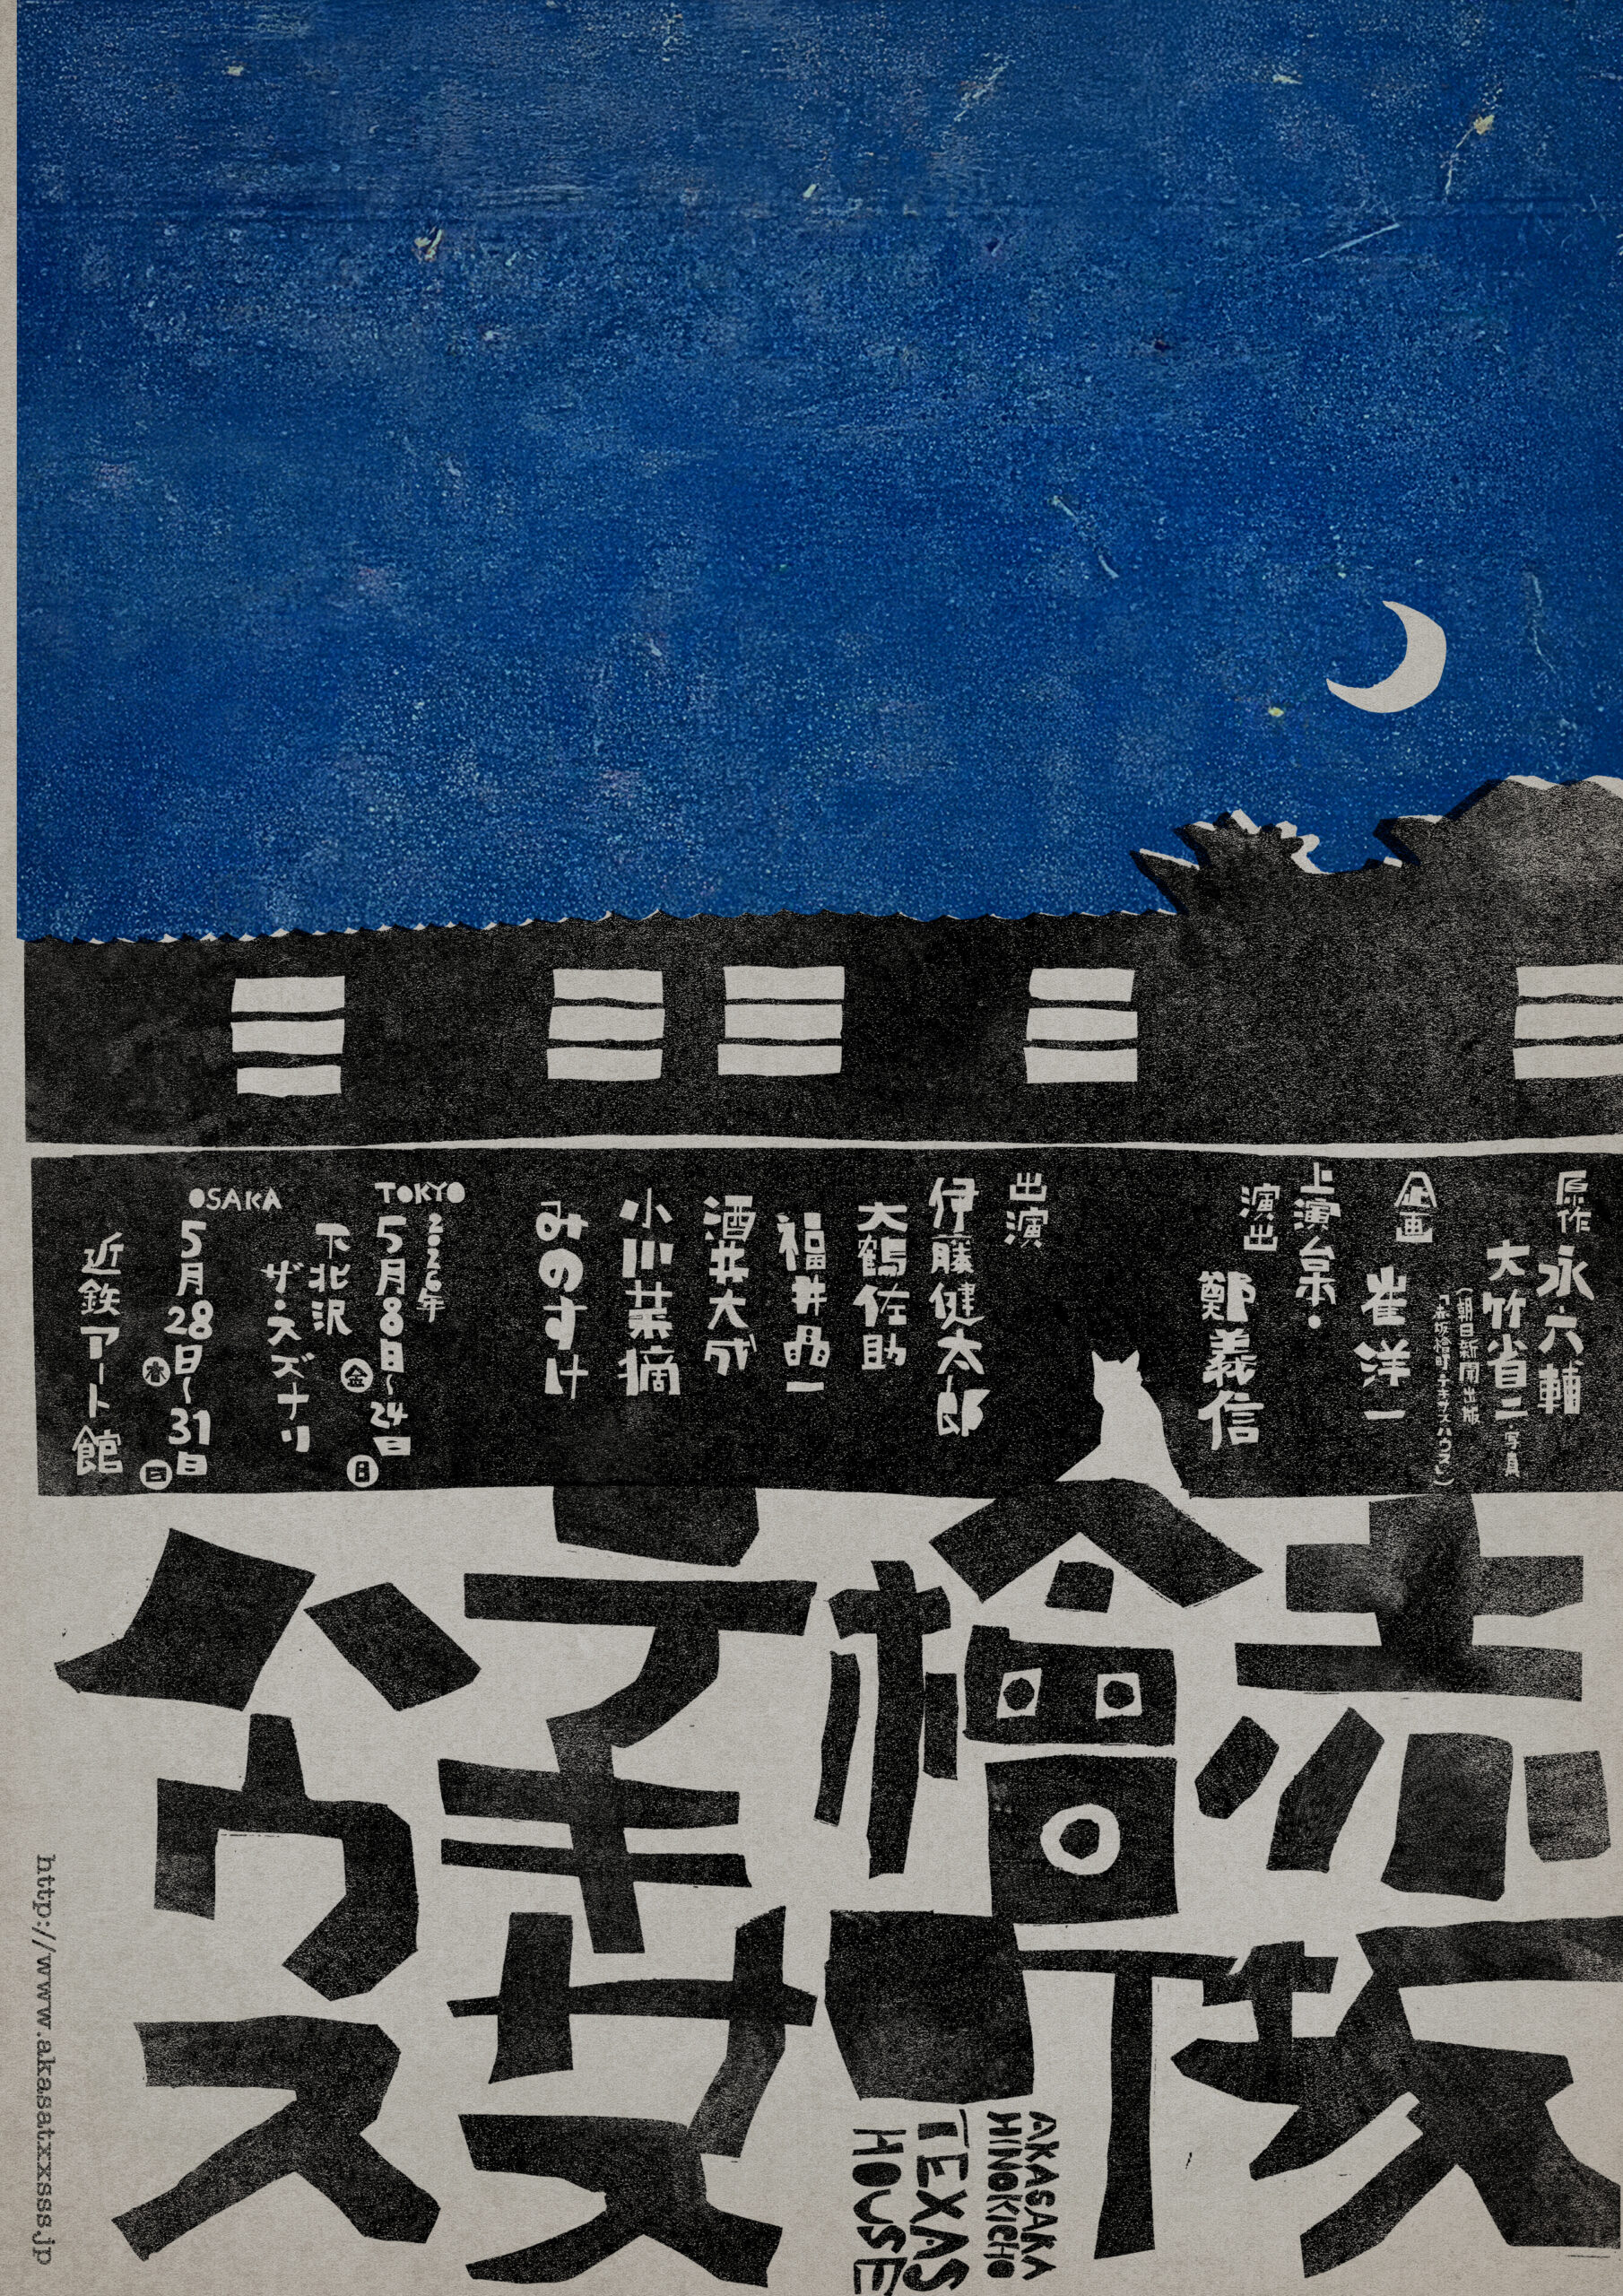 原作
永六輔
大竹省二 写真
(朝日新聞出版
「赤坂檜町テキサスハウス」)
企画
崔洋一
上演台本・
演出
鄭義信
出演
伊藤健太郎
大鶴佐助
福井晶一
酒井大成
小川菜摘
みのすけ
TOKYO
2026年
5月8日(金)~24日(日)
下北沢
ザ・スズナリ
OSAKA
5月28日(木)~31日(日)
近鉄アート館
赤坂
檜町
テキサ
ハウス
AKASAKA
HINOKICHO
TEXAS
HOUSE
http://www.akasatxxsss.jp